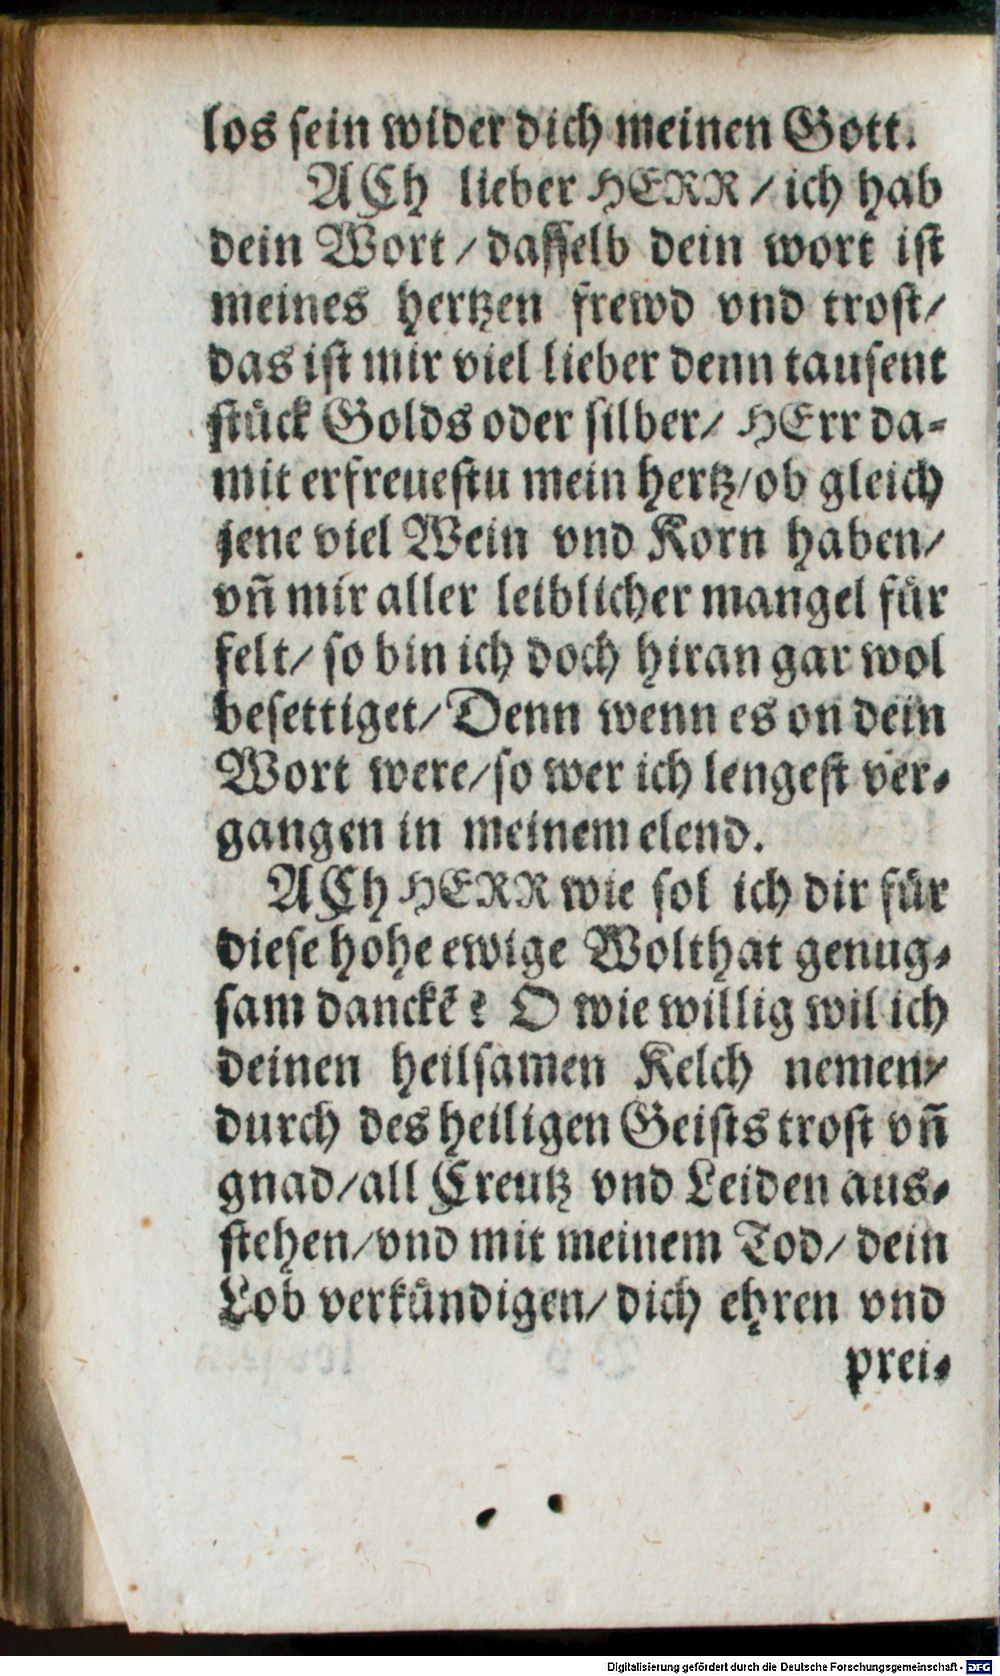 los sein wider dich meinen Gott.
ACh lieber HERR / ich hab
dein Wort / dasselb dein wort ist
meines hertzen frewd vnd trost /
das ist mir viel lieber denn tausent
stück Golds oder silber / HErr da-
mit erfreuestu mein hertz / ob gleich
jene viel Wein vnd Korn haben /
vñ mir aller leiblicher mangel für
felt / so bin ich doch hiran gar wol
besettiget / Denn wenn es on dein
Wort were / so wer ich lengest ver-
gangen in meinem elend.
ACh HERR wie sol ich dir für
diese hohe ewige Wolthat genug-
sam danckẽ? O wie willig wil ich
deinen heilsamen Kelch nemen /
durch des heiligen Geists trost vñ
gnad / all Creutz vnd Leiden aus-
stehen / vnd mit meinem Tod / dein
Lob verkündigen / dich ehren vnd
prei-
Digitalisierung gefördert durch die Deutsche Forschungsgemeinschaft - DFG